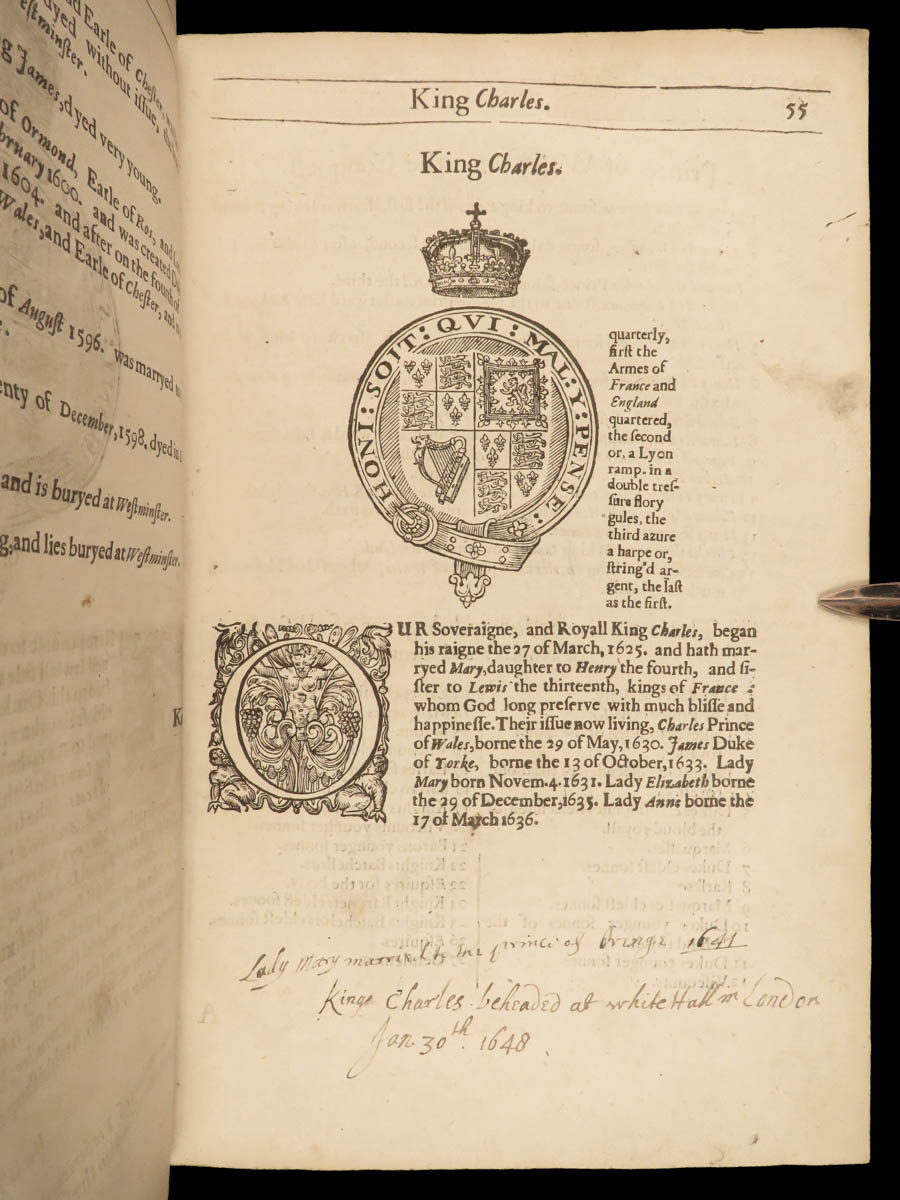 and Earle of Chester,
dyed without issue,
estminster.
g James, dyed very young.
of Ormond, Earle of Ros, and
bruary 1600. and was created
1604. and after on the fourth of
Wales, and Earle of Chester, and
of August 1596. was marryed
enty of December, 1598. dyed in
and is buryed at Westminster.
g, and lies buryed at Westminster.
King Charles. 55
King Charles.
HONI : SOIT : QVI : MAL : Y : PENSE :
quarterly,
first the
Armes of
France and
England
quartered,
the second
or, a Lyon
ramp. in a
double tres-
sure flory
gules, the
third azure
a harpe or,
string'd ar-
gent, the last
as the first.
OUR Soveraigne, and Royall King Charles, began
his raigne the 27 of March, 1625. and hath mar-
ryed Mary, daughter to Henry the fourth, and si-
ster to Lewis the thirteenth, kings of France :
whom God long preserve with much blisse and
happinesse. Their issue now living, Charles Prince
of Wales, borne the 29 of May, 1630. James Duke
of Yorke, borne the 13 of October, 1633. Lady
Mary born Novem. 4. 1631. Lady Elizabeth borne
the 29 of December, 1635. Lady Anne borne the
17 of March 1636.
Lady Mary married to the prince of Orringe 1641
Kinge Charles beheaded at white Hall in London
Jan. 30th. 1648.